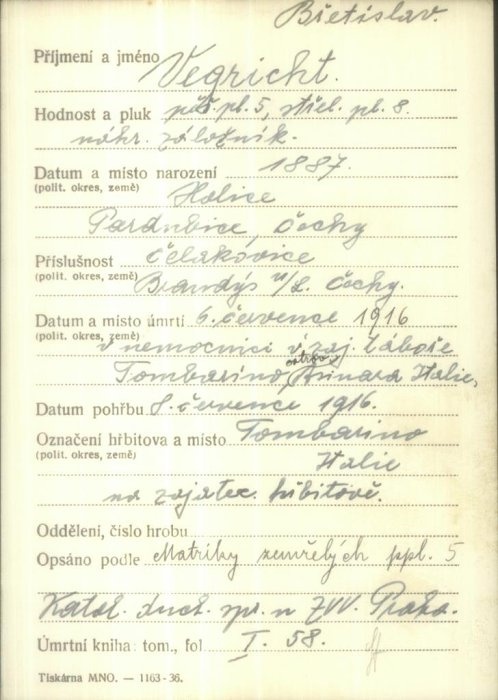 Břetislav.
Příjmení a jméno Vegricht.
Hodnost a pluk pěš. pl. 5, střel. pl. 8.
náhr. záložník.
Datum a místo narození 1887.
(polit. okres, země) Holice
Pardubice, Čechy
Příslušnost Čelakovice
(polit. okres, země) Brandýs n/L. Čechy.
Datum a místo úmrtí 6. července 1916
(polit. okres, země) v nemocnici v zaj. táboře
ostrov
Tombarino, Asinara Italie,
Datum pohřbu 8. července 1916.
Označení hřbitova a místo Tombarino
(polit. okres, země) Italie
na zajatec. hřbitově.
Oddělení, číslo hrobu
Opsáno podle Matriky zemřelých ppl. 5
Katol. duch. spr. u ZVV. Praha.
Úmrtní kniha: tom., fol. I. 58.
Tiskárna MNO. — 1163-36.